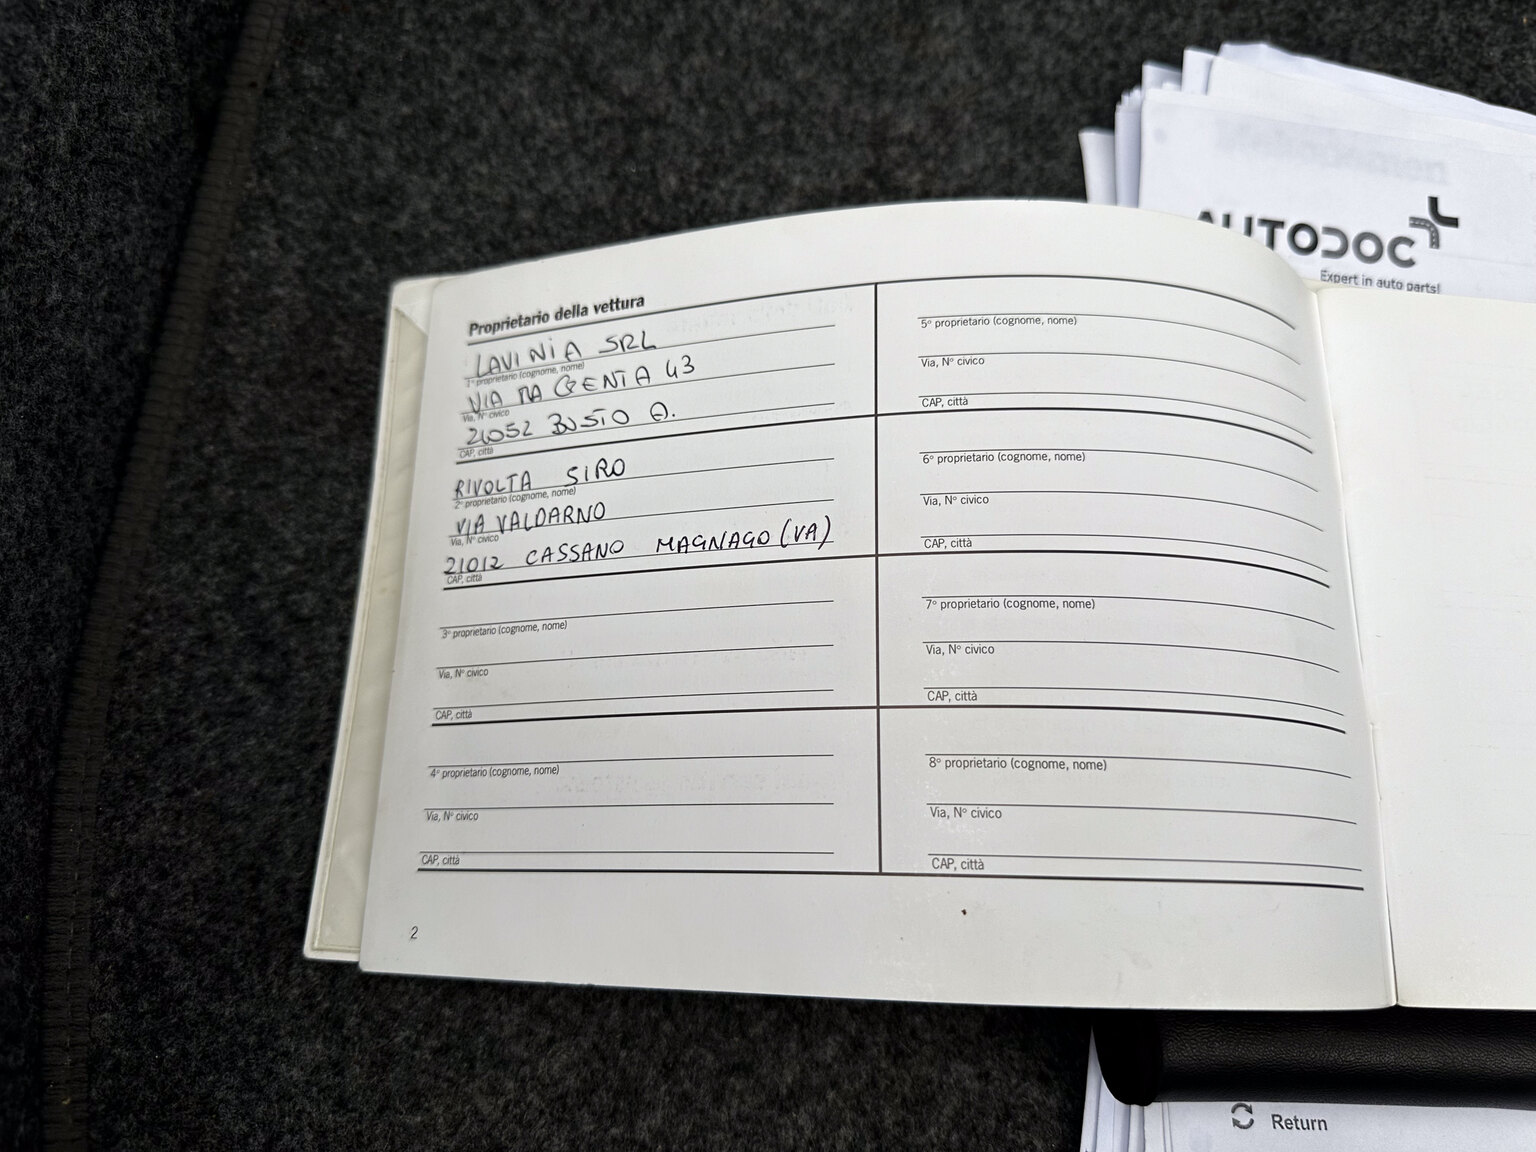 AUTODOC
Expert in auto parts!
Proprietario della vettura
LAVINIA SRL
1º proprietario (cognome, nome)
VIA MAGENTA 43
Via, Nº civico
21052 BUSTO A.
CAP, città
RIVOLTA SIRO
2º proprietario (cognome, nome)
VIA VALDARNO
Via, Nº civico
21012 CASSANO MAGNAGO (VA)
CAP, città
3º proprietario (cognome, nome)
Via, Nº civico
CAP, città
4º proprietario (cognome, nome)
Via, Nº civico
CAP, città
5º proprietario (cognome, nome)
Via, Nº civico
CAP, città
6º proprietario (cognome, nome)
Via, Nº civico
CAP, città
7º proprietario (cognome, nome)
Via, Nº civico
CAP, città
8º proprietario (cognome, nome)
Via, Nº civico
CAP, città
2
Return